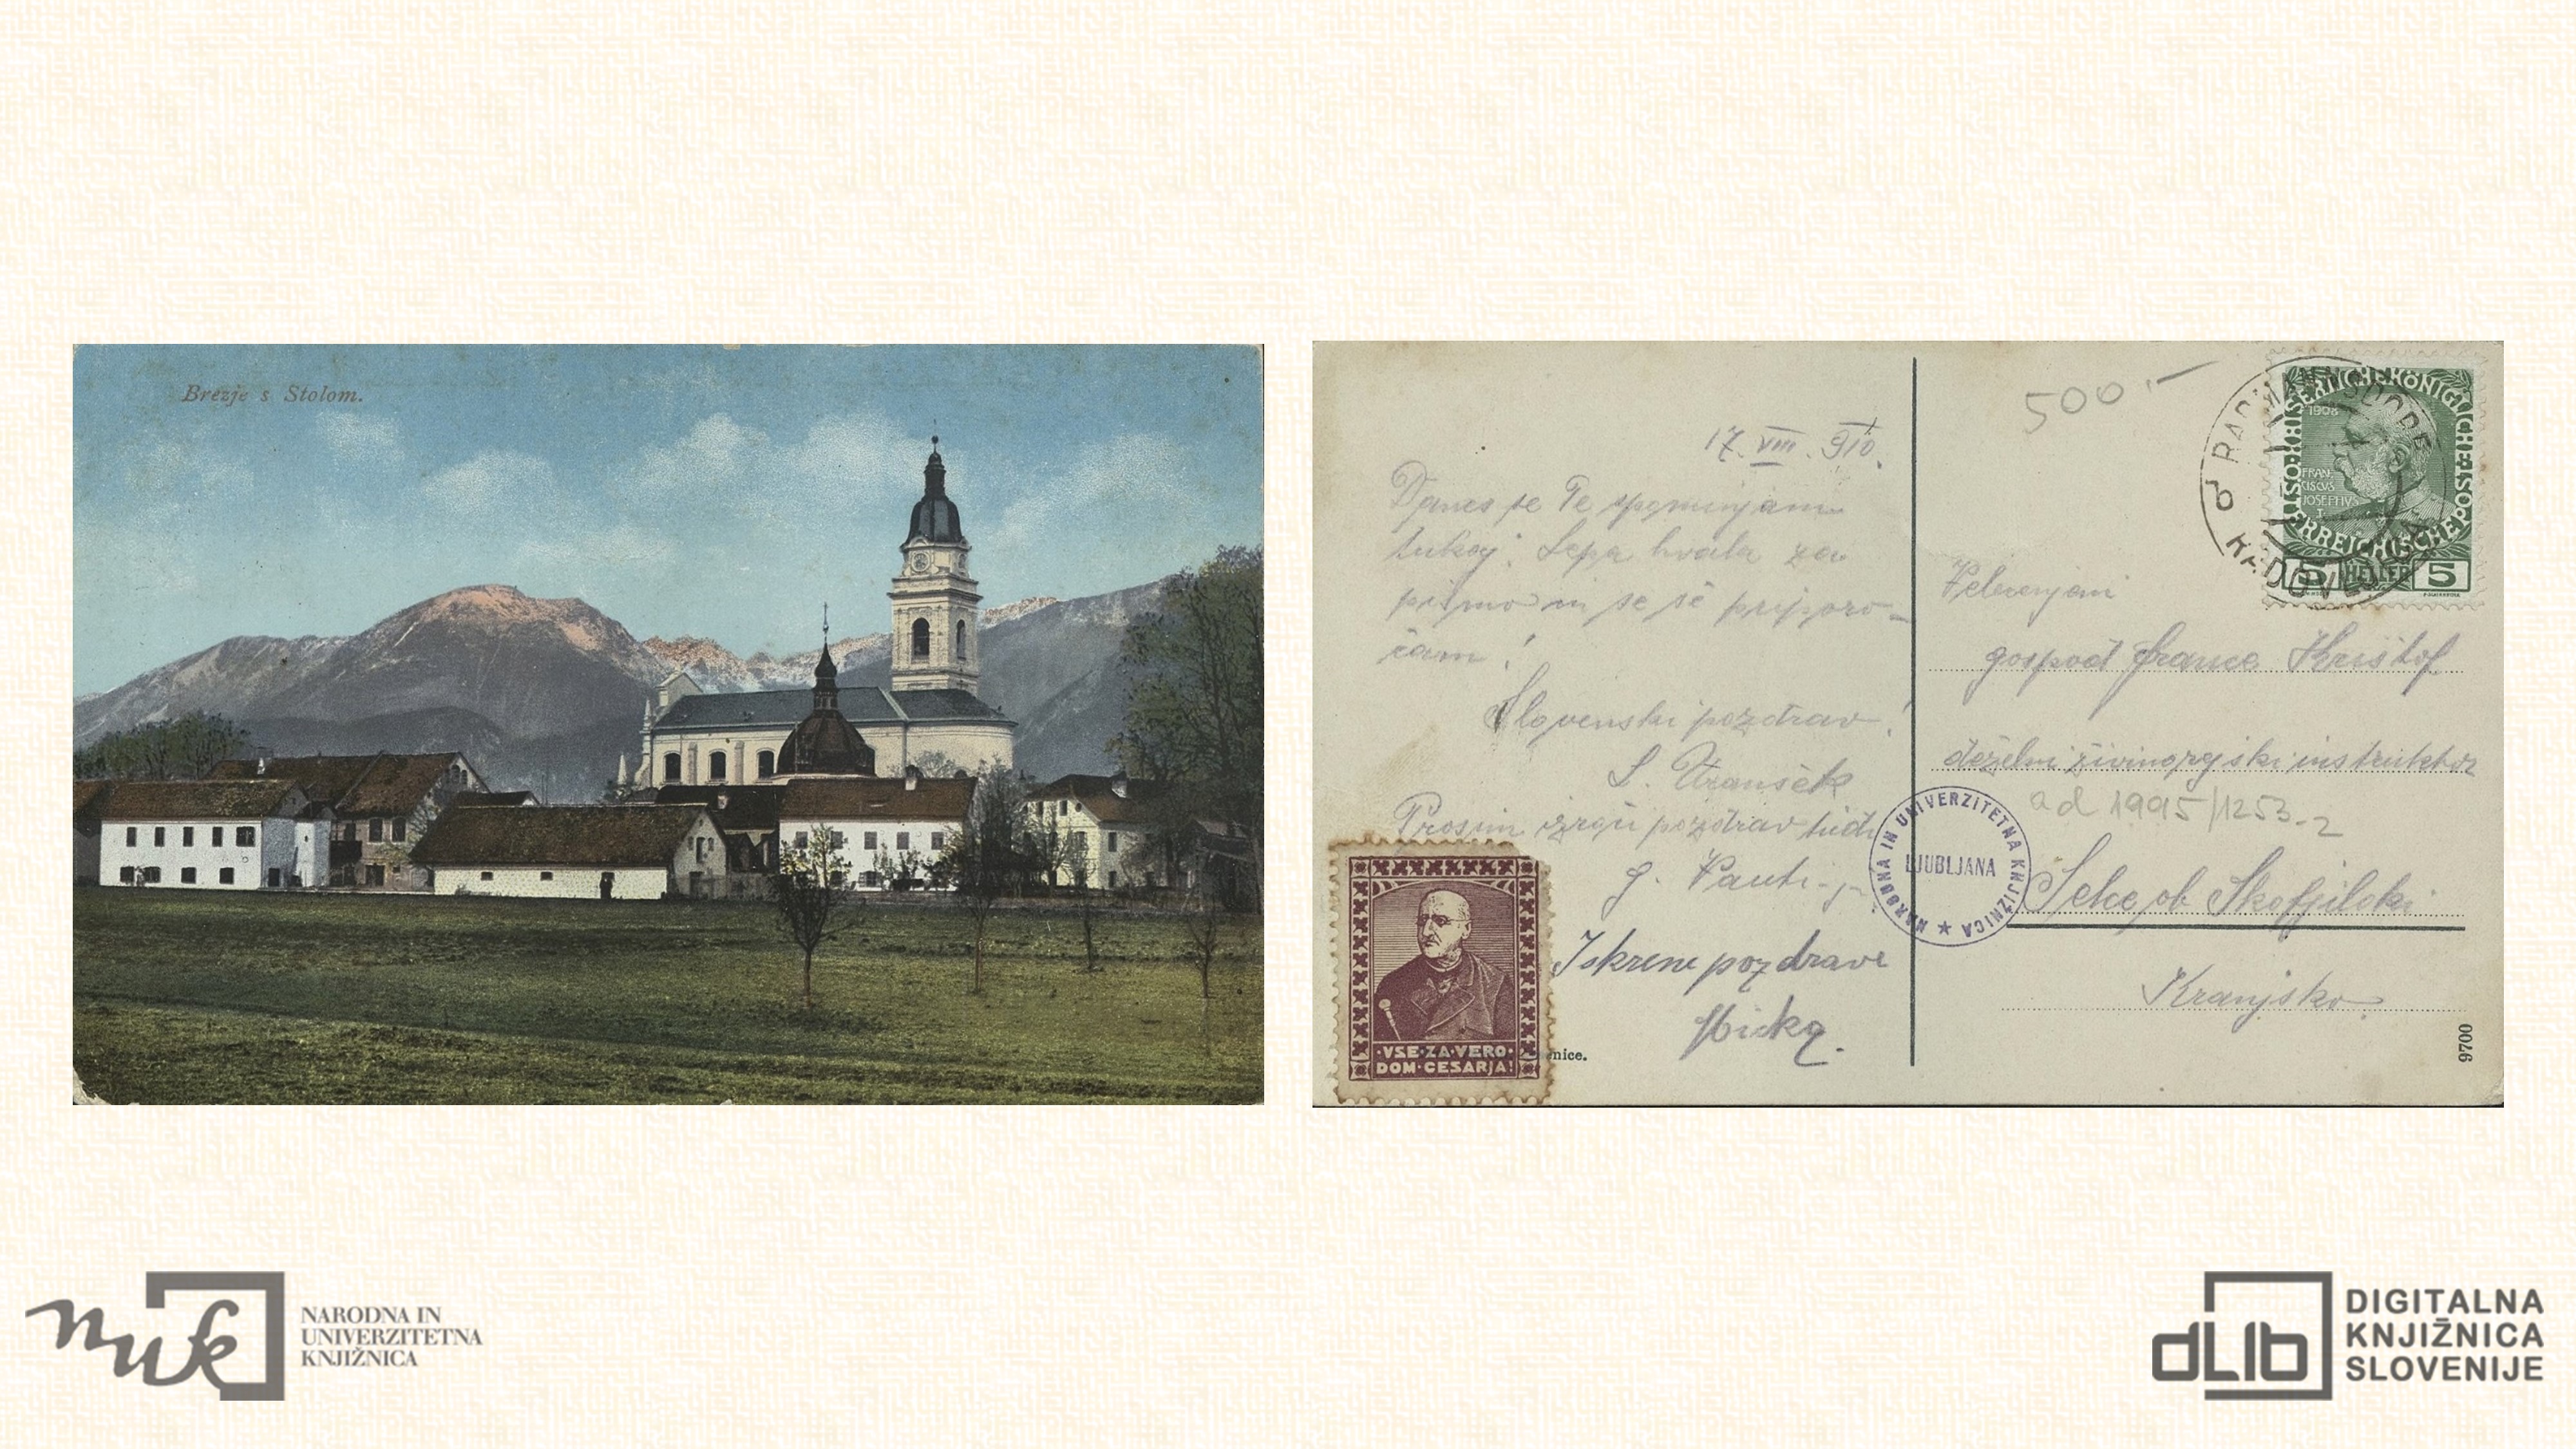 Brezje s Stolom.
17. VIII. 910.
Danes se Te spominjam
tukaj. Lepa hvala za
pismo in se še priporo-
čam!
Slovenski pozdrav!
Prosim izroči pozdrav tudi
g.
Iskrene pozdrave
Micka.
VSE·ZA·VERO·
DOM·CESARJA!
nice.
500.-
RADMANNSDORF
RADOVLJICA
KAISERLICHE KÖNIGLICHE ÖSTERREICHISCHE POST
1908
FRAN-
CISCUS
JOSEPHVS
I.
5 HELLER 5
Velecenjeni
gospod France Krištof
deželni živinorejski instruktor
ad 1995/1253-2
NARODNA IN UNIVERZITETNA KNJIŽNICA ★
LJUBLJANA
Selce ob Škofjiloki
Kranjsko.
9700
nuk
NARODNA IN
UNIVERZITETNA
KNJIŽNICA
dLib
DIGITALNA
KNJIŽNICA
SLOVENIJE